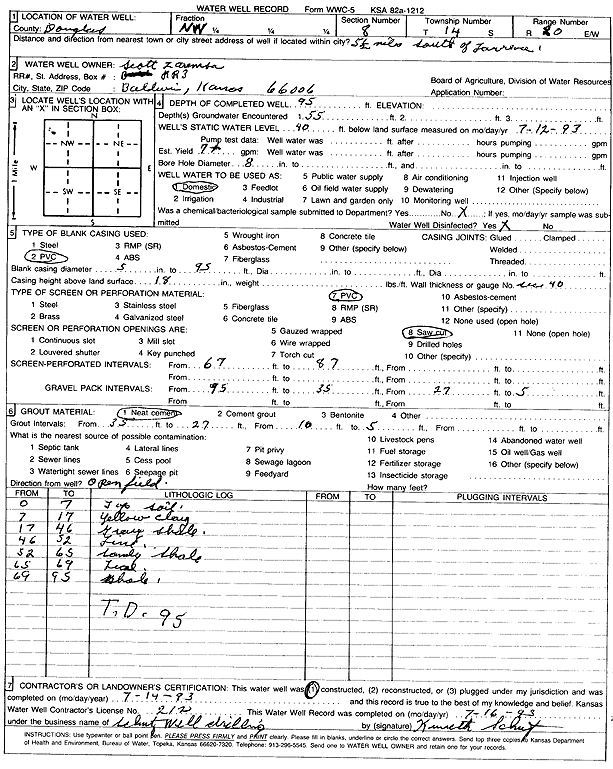 WATER WELL RECORD Form WWC-5 KSA 82a-1212
1 LOCATION OF WATER WELL: Fraction Section Number Township Number Range Number
County: Douglas NW ¼ ¼ ¼ 8 T 14 S R 20 E/W
Distance and direction from nearest town or city street address of well if located within city? 5½ miles south of Lawrence
2 WATER WELL OWNER: Scott
RR#, St. Address, Box # : RR3 Board of Agriculture, Division of Water Resources
City, State, ZIP Code : Baldwin, Kansas 66006 Application Number:
3 LOCATE WELL'S LOCATION WITH AN "X" IN SECTION BOX: 4 DEPTH OF COMPLETED WELL 95 ft. ELEVATION:
N Depth(s) Groundwater Encountered 1. 55 ft. 2. ft. 3. ft.
WELL'S STATIC WATER LEVEL 40 ft. below land surface measured on mo/day/yr 7-12-93
Pump test data: Well water was ft. after hours pumping gpm
NW NE Est. Yield 7+ gpm: Well water was ft. after hours pumping gpm
1 Mile W E Bore Hole Diameter 8 in. to ft., and in. to ft.
WELL WATER TO BE USED AS: 5 Public water supply 8 Air conditioning 11 Injection well
SW SE 1 Domestic 3 Feedlot 6 Oil field water supply 9 Dewatering 12 Other (Specify below)
2 Irrigation 4 Industrial 7 Lawn and garden only 10 Monitoring well
Was a chemical/bacteriological sample submitted to Department? Yes No X ; If yes, mo/day/yr sample was sub-
S mitted Water Well Disinfected? Yes X No
5 TYPE OF BLANK CASING USED: 5 Wrought iron 8 Concrete tile CASING JOINTS: Glued Clamped
1 Steel 3 RMP (SR) 6 Asbestos-Cement 9 Other (specify below) Welded
2 PVC 4 ABS 7 Fiberglass Threaded
Blank casing diameter 5 in. to 95 ft., Dia in. to ft., Dia in. to ft.
Casing height above land surface 18 in., weight lbs./ft. Wall thickness or gauge No. 40
TYPE OF SCREEN OR PERFORATION MATERIAL: 7 PVC 10 Asbestos-cement
1 Steel 3 Stainless steel 5 Fiberglass 8 RMP (SR) 11 Other (specify)
2 Brass 4 Galvanized steel 6 Concrete tile 9 ABS 12 None used (open hole)
SCREEN OR PERFORATION OPENINGS ARE: 5 Gauzed wrapped 8 Saw cut 11 None (open hole)
1 Continuous slot 3 Mill slot 6 Wire wrapped 9 Drilled holes
2 Louvered shutter 4 Key punched 7 Torch cut 10 Other (specify)
SCREEN-PERFORATED INTERVALS: From 67 ft. to 87 ft., From ft. to ft.
From ft. to ft., From ft. to ft.
GRAVEL PACK INTERVALS: From 95 ft. to 35 ft., From 27 ft. to 5 ft.
From ft. to ft., From ft. to ft.
6 GROUT MATERIAL: 1 Neat cement 2 Cement grout 3 Bentonite 4 Other
Grout Intervals: From 35 ft. to 27 ft., From 10 ft. to 5 ft., From ft. to ft.
What is the nearest source of possible contamination: 10 Livestock pens 14 Abandoned water well
1 Septic tank 4 Lateral lines 7 Pit privy 11 Fuel storage 15 Oil well/Gas well
2 Sewer lines 5 Cess pool 8 Sewage lagoon 12 Fertilizer storage 16 Other (specify below)
3 Watertight sewer lines 6 Seepage pit 9 Feedyard 13 Insecticide storage
Direction from well? Open field. How many feet?
FROM TO LITHOLOGIC LOG FROM TO PLUGGING INTERVALS
0 7 Top soil.
7 17 Yellow clay
17 46 Gray shale.
46 52 Lime.
52 65 Sandy shale
65 69 Lime.
69 95 Shale.
T.D. 95
7 CONTRACTOR'S OR LANDOWNER'S CERTIFICATION: This water well was (1) constructed, (2) reconstructed, or (3) plugged under my jurisdiction and was
completed on (mo/day/year) 7-14-93 and this record is true to the best of my knowledge and belief. Kansas
Water Well Contractor's License No. 212 This Water Well Record was completed on (mo/day/yr) 7-16-93
under the business name of Schut Well drilling by (signature) Kenneth Schut
INSTRUCTIONS: Use typewriter or ball point pen. PLEASE PRESS FIRMLY and PRINT clearly. Please fill in blanks, underline or circle the correct answers. Send top three copies to Kansas Department
of Health and Environment, Bureau of Water, Topeka, Kansas 66620-7320. Telephone: 913-296-5545. Send one to WATER WELL OWNER and retain one for your records.